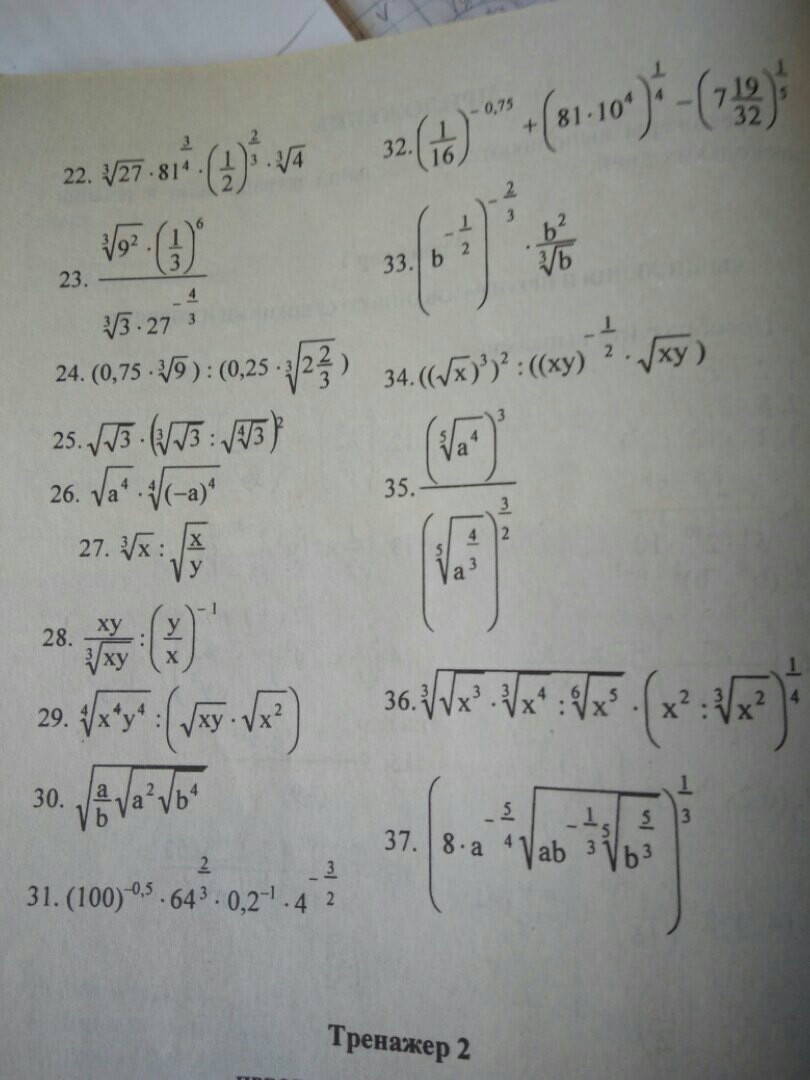 22. ∛27 · 81^(3/4) · (1/2)^(2/3) · ∛4
23. (∛(9²) · (1/3)⁶) / (∛3 · 27^(-4/3))
24. (0,75 · ∛9) : (0,25 · ∛(2 2/3))
25. √(√3) · (∛(√3) : √(∜3))²
26. √(a⁴) · ∜((−a)⁴)
27. ∛x : √(x/y)
28. xy/∛(xy) : (y/x)⁻¹
29. ∜(x⁴y⁴) : (√(xy) · √(x²))
30. √(a/b √(a² √(b⁴)))
31. (100)^(−0,5) · 64^(2/3) · 0,2⁻¹ · 4^(−3/2)
32. (1/16)^(−0,75) + (81 · 10⁴)^(1/4) − (7 19/32)^(1/5)
33. (b^(−1/2))^(−2/3) · b²/∛b
34. ((√x)³)² : ((xy)^(−1/2) · √(xy))
35. (⁵√(a⁴))³ / (⁵√(a^(4/3)))^(3/2)
36. ∛(√(x³) · ∛(x⁴) : ⁶√(x⁵)) · (x² : ∛(x²))^(1/4)
37. (8 · a^(−5/4) √(ab^(−1/3) ⁵√(b^(5/3))))^(1/3)
Тренажер 2